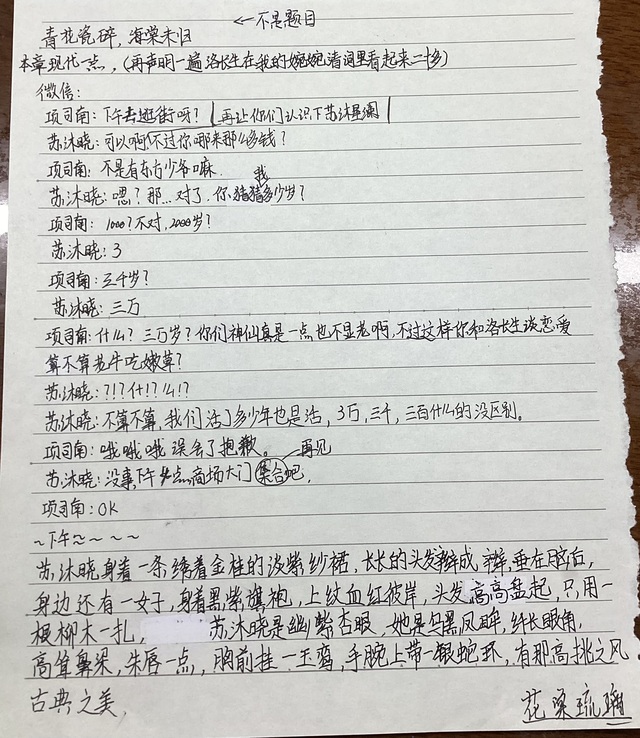 ←不是题目
青花瓷碎,海棠未归
本章现代一点,(再声明一遍洛长生在我的婉婉清词里看起来二十多)
微信:
项司南:下午去逛街呀? 再让你们认识下苏沐星澜
苏沐晓:可以啊不过你哪来那么多钱?
项司南:不是有东方少爷嘛.
苏沐晓:嗯?那…对了.你猜猜我多少岁?
项司南:1000?不对,2000岁?
苏沐晓:3
项司南:三千岁?
苏沐晓:三万
项司南:什么?三万岁?你们神仙真是一点也不显老啊,不过这样你和洛长生谈恋爱
算不算老牛吃嫩草?
苏沐晓:?!?什!?么!?
苏沐晓:不算不算,我们活了多少年也是活,3万,三千,三百什么的没区别。
项司南:哦哦哦误会了抱歉。 再见
苏沐晓:没事,下午 点商场大门集合吧,
项司南:OK
~下午~~~~
苏沐晓身着一条绣着金桂的淡紫纱裙,长长的头发辫成 辫,垂在脑后,
身边还有一女子,身着黑紫旗袍,上纹血红彼岸,头发高高盘起,只用一
根柳木一扎, 苏沐晓是幽紫杏眼,她是乌黑凤眸,纤长眼角,
高耸鼻梁,朱唇一点,胸前挂一玉鸾,手腕上带一银蛇环,有那高挑之风,
古典之美,
花梁琉璃